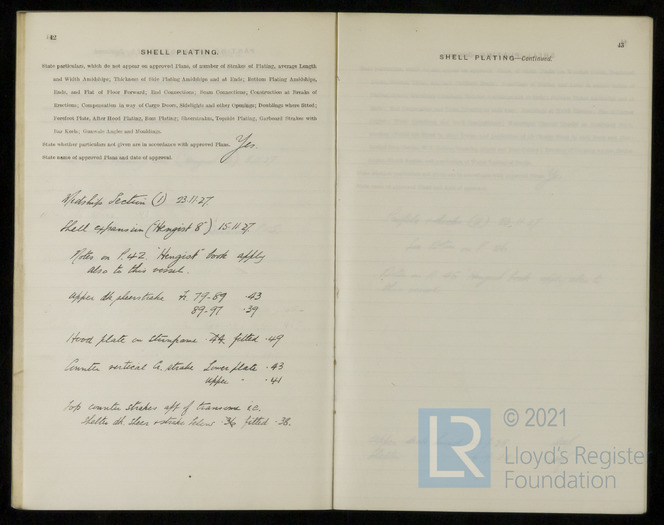 42
SHELL PLATING.
State particulars, which do not appear on approved Plans, of number of Strakes of Plating, average Length
and Width Amidships; Thickness of Side Plating Amidships and at Ends; Bottom Plating Amidships,
Ends, and Flat of Floor Forward; End Connections; Seam Connections; Construction at Breaks of
Erections; Compensation in way of Cargo Doors, Sidelights and other Openings; Doublings where fitted;
Forefoot Plate, After Hood Plating, Boss Plating; Sheerstrakes, Topside Plating, Garboard Strakes with
Bar Keels; Gunwale Angles and Mouldings.
State whether particulars not given are in accordance with approved Plans. Yes.
State name of approved Plans and date of approval.
Midship Section (1) 23.11.27.
Shell expansion ("Hengist 8") 15.11.27.
Notes on P.42 "Hengist" book apply
also to this vessel.
Upper dk sheerstrake Fr 79-89 .43
89-97 .39
Hood plate on sternframe .44 fitted .49
Counter vertical strake Lower plate .43
upper " .41
Top counter strakes aft of transome &c.
Shelter dk. sheer & strake below .36 fitted .38.
43
SHELL PLATING—Continued.
© 2021
LR
Lloyd's Register
Foundation